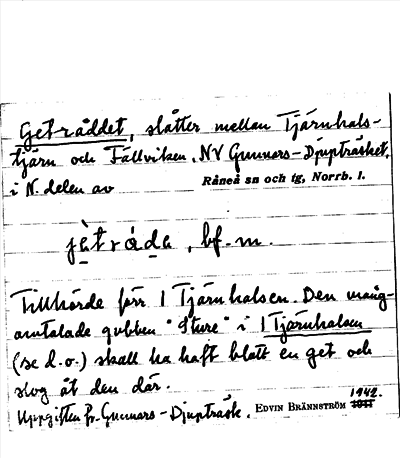 Getråddet, slåtter mellan Tjärnhals-
tjärn och Fällviken, NV Gunnors-Djupträsket,
i N. delen av Råneå sn och tg, Norrb. l.
jè̱trå̱də, bf. m.
Tillhörde förr 1 Tjärnhalsen. Den mång-
omtalade gubben "Sture" i 1 Tjärnhalsen
(se d.o.) skall ha haft blott en get och
slog åt den där.
Uppgiften fr. Gunnors-Djupträsk. EDVIN BRÄNNSTRÖM 1942.